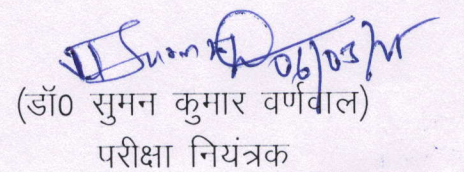 06/03/25
(डॉ0 सुमन कुमार वर्णवाल)
परीक्षा नियंत्रक